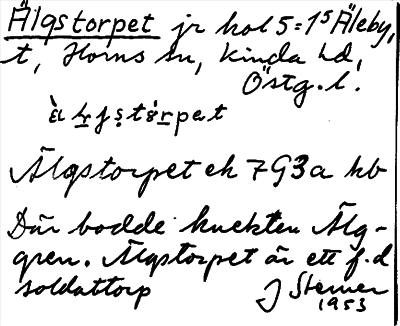 Älgstorpet jr kol 5:1⁵ Äleby,
t, Horns sn, Kinda hd,
Östg. l.
Älgstorpet ek 7G3a kb
Där bodde knekten Älg-
gren. Älgstorpet är ett f.d
soldattorp
J Sterner
1953